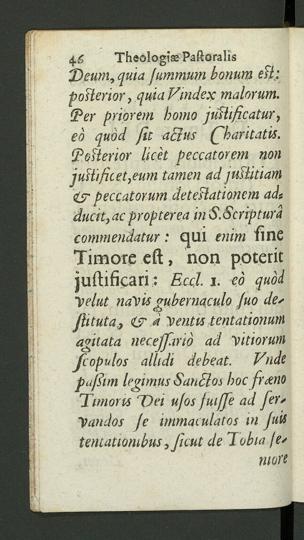 46 Theologiæ Pastoralis
Deum, quia summum bonum est:
posterior, quia Vindex malorum.
Per priorem homo justificatur,
eò quòd sit actus Charitatis.
Posterior licèt peccatorem non
justificet, eum tamen ad justitiam
& peccatorum detestationem ad-
ducit, ac propterea in S. Scripturâ
commendatur: qui enim sine
Timore est, non poterit
justificari: Eccl. 1. eò quòd
velut navis gubernaculo suo de-
stituta, & à ventis tentationum
agitata necessariò ad vitiorum
scopulos allidi debeat. Vnde
passim legimus Sanctos hoc fræno
Timoris Dei usos fuisse ad ser-
vandos se immaculatos in suis
tentationibus, sicut de Tobia se-
niore